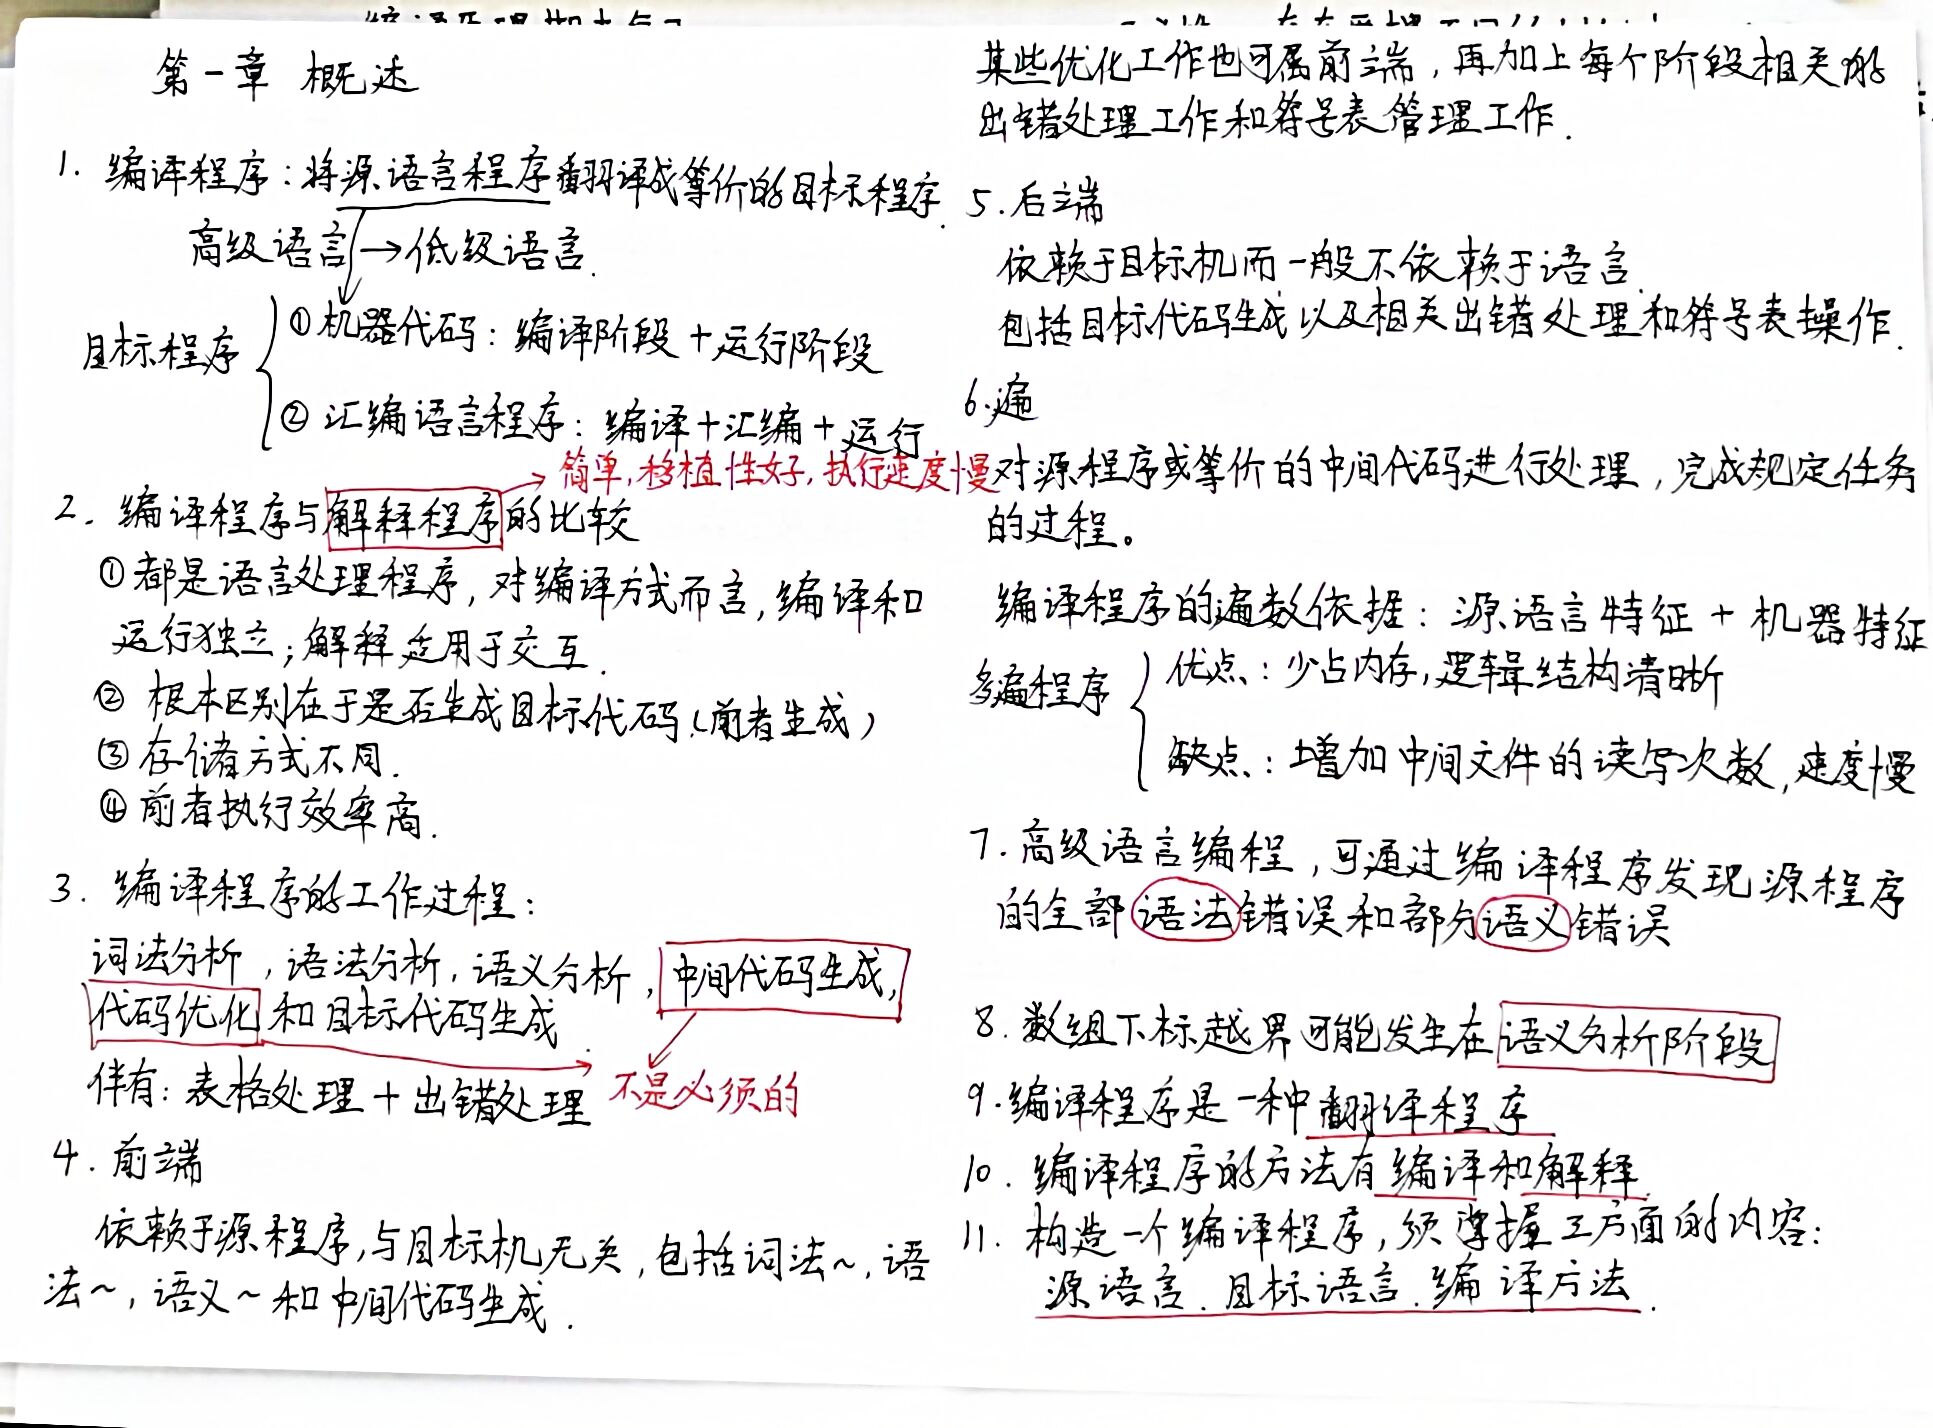 第一章 概述
1. 编译程序：将源语言程序翻译成等价的目标程序.
高级语言→低级语言.
目标程序
①机器代码：编译阶段+运行阶段
② 汇编语言程序：编译+汇编+运行
简单,移植性好,执行速度慢
2. 编译程序与解释程序的比较
①都是语言处理程序，对编译方式而言，编译和
运行独立；解释适用于交互.
② 根本区别在于是否生成目标代码.(前者生成)
③ 存储方式不同.
④ 前者执行效率高.
3. 编译程序的工作过程：
词法分析，语法分析，语义分析，中间代码生成，
代码优化 和目标代码生成.
伴有：表格处理+出错处理
不是必须的
4. 前端
依赖于源程序，与目标机无关，包括词法~，语
法~，语义~和中间代码生成.
某些优化工作也可属前端，再加上每个阶段相关的
出错处理工作和符号表管理工作.
5. 后端
依赖于目标机而一般不依赖于语言.
包括目标代码生成以及相关出错处理和符号表操作.
6.遍
对源程序或等价的中间代码进行处理，完成规定任务
的过程。
编译程序的遍数依据：源语言特征+机器特征
多遍程序
优点：少占内存，逻辑结构清晰
缺点：增加中间文件的读写次数，速度慢
7. 高级语言编程，可通过编译程序发现源程序
的全部语法错误和部分语义错误
8. 数组下标越界可能发生在语义分析阶段
9.编译程序是一种翻译程序
10. 编译程序的方法有编译和解释.
11. 构造一个编译程序，须掌握三方面的内容：
源语言.目标语言.编译方法.